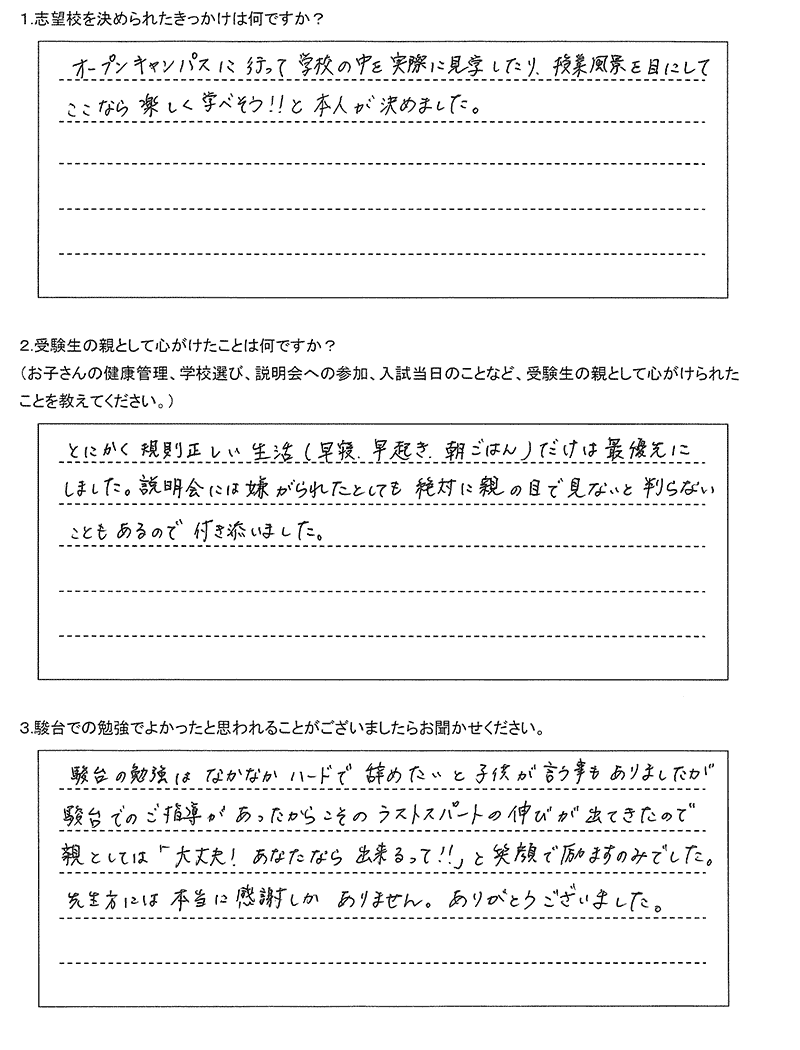 1.志望校を決められたきっかけは何ですか？
オープンキャンパスに行って学校の中を実際に見学したり、授業風景を目にして
ここなら楽しく学べそう!!と本人が決めました。
2.受験生の親として心がけたことは何ですか？
（お子さんの健康管理、学校選び、説明会への参加、入試当日のことなど、受験生の親として心がけられた
ことを教えてください。）
とにかく規則正しい生活(早寝.早起き.朝ごはん)だけは最優先に
しました。説明会には嫌がられたとしても絶対に親の目で見ないと判らない
こともあるので付き添いました。
3.駿台での勉強でよかったと思われることがございましたらお聞かせください。
駿台の勉強はなかなかハードで辞めたいと子供が言う事もありましたが
駿台でのご指導があったからこそのラストスパートの伸びが出てきたので
親としては「大丈夫!あなたなら出来るって!!」と笑顔で励ますのみでした。
先生方には本当に感謝しかありません。ありがとうございました。